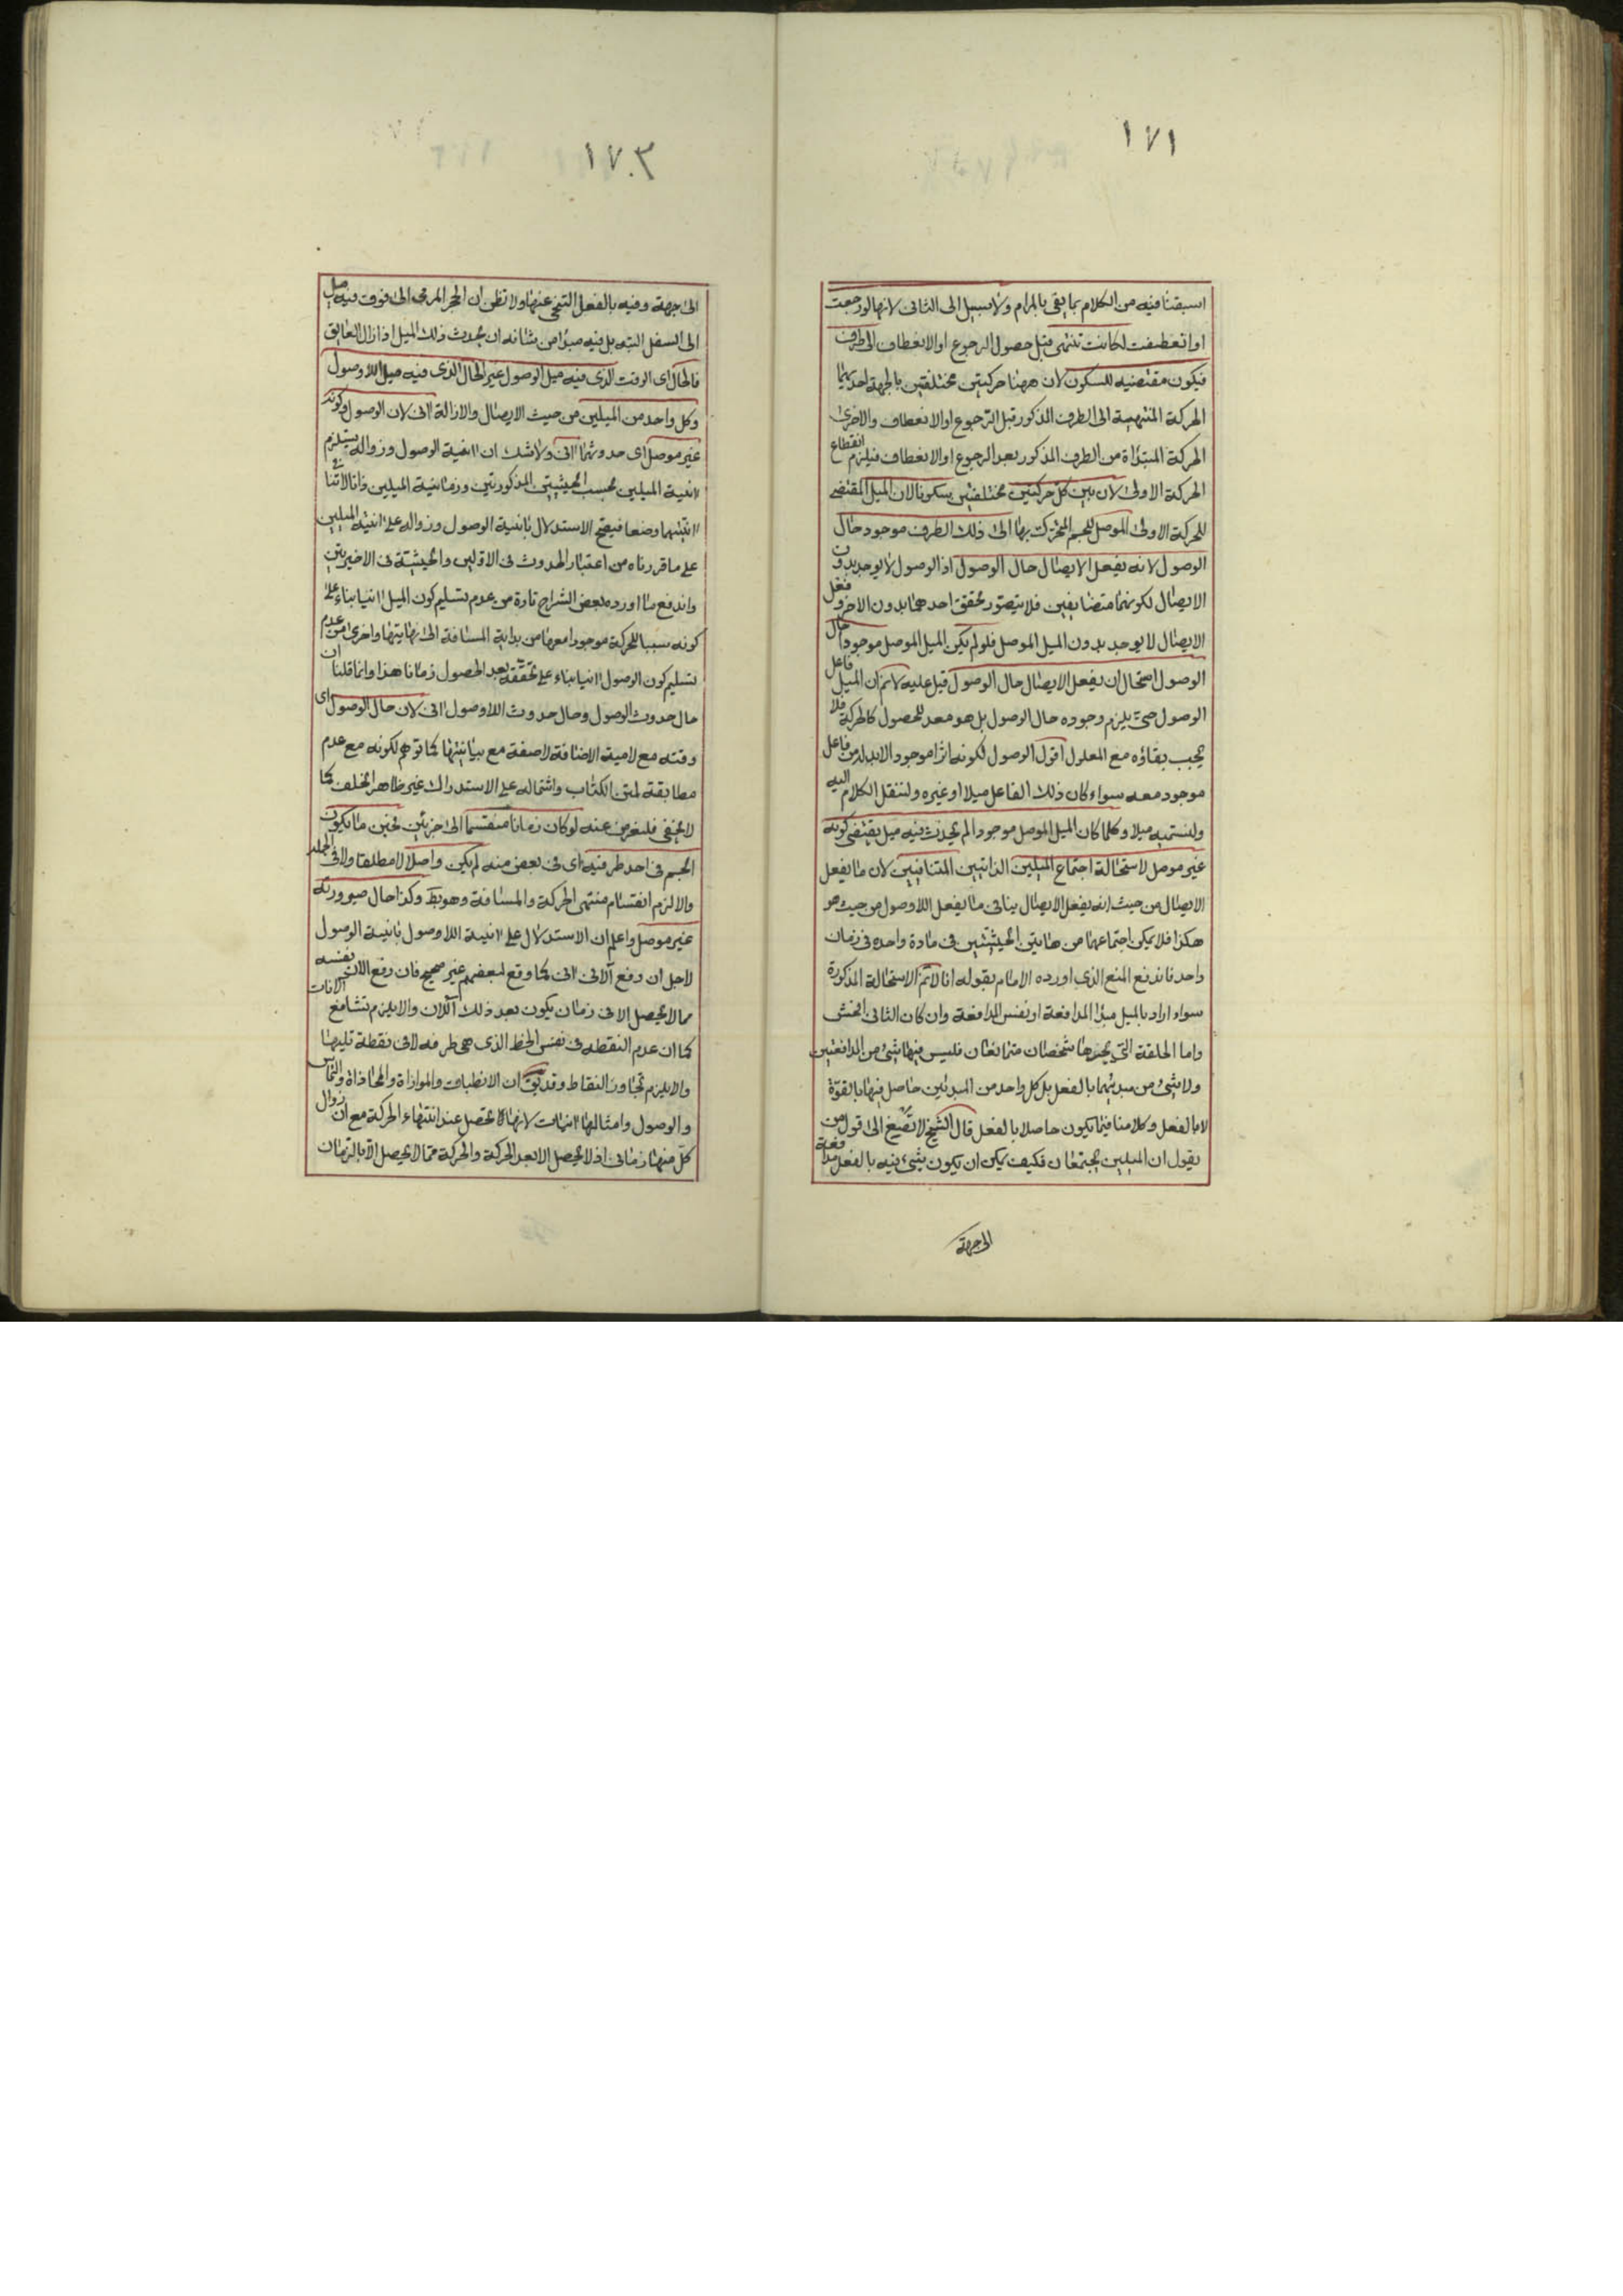 ١٧١
اسبقنا فيه من الكلام بما يفى بالمرام ولا سبيل الى الثانى لانها لو رجعت
او انعطفت لكانت تنتهى قبل حصول الرجوع او الانعطاف الى طرف
فيكون مقتضيه للسكون لان ههنا حركتين مختلفتين بالجهة احديهما
الحركة المنتهية الى الطرف المذكور قبل الرجوع او الانعطاف والاخرى
الحركة المبتداة من الطرف المذكور بعد الرجوع او الانعطاف فيلزم انقطاع
الحركة الاولى لان بين كل حركتين مختلفتين سكونا لان الميل المقتضى
للحركة الاولى الموصل للجسم المتحرك بها الى ذلك الطرف موجود حال
الوصول لانه يفعل الايصال حال الوصول اذ الوصول لا يوجد بدون
الايصال لكونهما متضايفين فلا يتصور تحقق احدهما بدون الاخر وفعل
الايصال لا يوجد بدون الميل الموصل فلو لم يكن الميل الموصل موجودا حال
الوصول استحال ان يفعل الايصال حال الوصول قيل عليه لا نم ان الميل فاعل
الوصول حتى يلزم وجوده حال الوصول بل هو معد للحصول كالحركة فلا
يجب بقاؤه مع المعلول اقول الوصول لكونه اثرا موجودا لابد له من فاعل
موجود معه سواء كان ذلك الفاعل ميلا او غيره ولننقل الكلام اليه
ولنسميه ميلا وكلما كان الميل الموصل موجودا لم يحدث فيه ميل يقتضى كونه
غير موصل لاستحالة اجتماع الميلين الذاتيين المتنافيين لان ما يفعل
الايصال من حيث انه يفعل الايصال ينافى ما يفعل اللاوصول من حيث هو
هكذا فلا يمكن اجتماعهما من هاتين الحيثيتين فى مادة واحدة فى زمان
واحد فاندفع المنع الذى اورده الامام بقوله انا لا نم الاستحالة المذكورة
سواء اراد بالميل مبدا المدافعة او نفس المدافعة وان كان الثانى افحش
واما الحلقة التى يجذبها شخصان متمانعان فليس فيها شئ من المدافعتين
ولا شئ من مبدئيهما بالفعل بل كل واحد من المبدئين حاصل فيها بالقوة
لا بالفعل وكلامنا فيما يكون حاصلا بالفعل قال الشيخ لا تصغ الى قول من
يقول ان الميلين يجتمعان فكيف يمكن ان يكون شئ فيه بالفعل مدافعة
الى جهة
١٧٣
الى جهة وفيه بالفعل التنحى عنها ولا تظن ان الحجر المرمى الى فوق فيه ميل
الى السفل البتة بل فيه مبدا من شانه ان يحدث ذلك الميل اذا زال العايق
فالحال اى الوقت الذى فيه ميل الوصول غير الحال الذى فيه ميل اللاوصول
وكل واحد من الميلين من حيث الايصال والازالة انى لان الوصول وكونه
غير موصل اى حدوثهما انى ولا شك ان انية الوصول وزواله يستلزم
انية الميلين بحسب الحيثيتين المذكورتين وزمانية الميلين
انيتهما وضعا فيصح الاستدلال بانية الوصول وزواله على انية الميلين
على ما قررناه من اعتبار الحدوث فى الاولين والحيثية فى الاخيرتين
واندفع ما اورده بعض الشراح تارة من عدم تسليم كون الميل انيا بناء على
كونه سببا للحركة موجودا معها من بداية المسافة الى نهايتها واخرى من عدم
تسليم كون الوصول انيا بناء على تحققه بعد الحصول زمانا هذا وانما قلنا ان
حال حدوث الوصول وحال حدوث اللاوصول انى لان حال الوصول اى
وقته مع لامية الاضافة لا صفة مع بيانيتها كما توهم لكونه مع عدم
مطابقة لمتن الكتاب واشتماله على الاستدراك غير ظاهر الخلف كما
لا يخفى فلنعرض عنه لو كان زمانا منقسما الى جزئين فحين ما يكون
الجسم فى احد طرفيه اى فى بعض منه لم يكن واصلا لا مطلقا ولا فى الجملة
والا لزم انقسام منتهى الحركة والمسافة وهو بط وكذا حال صيرورته
غير موصل واعلم ان الاستدلال على انية اللاوصول بانية الوصول
لاجل ان رفع الانى انى كما وقع لبعضهم غير صحيح فان رفع الان نفسه
مما لا يحصل الا فى زمان يكون بعد ذلك الان والا يلزم تشافع الانات
كما ان عدم النقطه فى نفس الخط الذى هى طرفه لا فى نقطة تليها
والا يلزم تجاور النقاط وقد يق ان الانطباق والموازاة والمحاذاة والتماس
والوصول وامثالها انيات لانها لا تحصل عند انتهاء الحركة مع ان زوال
كل منها زمانى اذ لا يحصل الا بعد الحركة والحركة مما لا يحصل الا بالزمان